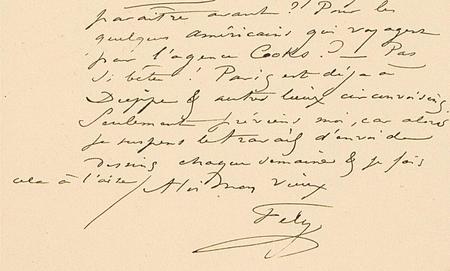 paraître avant ? Pour les
quelques américains qui voyagent
par l'agence Cooks. ? — Pas
si bête ! Paris est déjà à
Dieppe & autres lieux circonvoisins.
Seulement préviens moi, car alors
je suspens le travail d'envoi de
dessins chaque semaine & je fais
cela à l'aise / A toi mon vieux
Fely